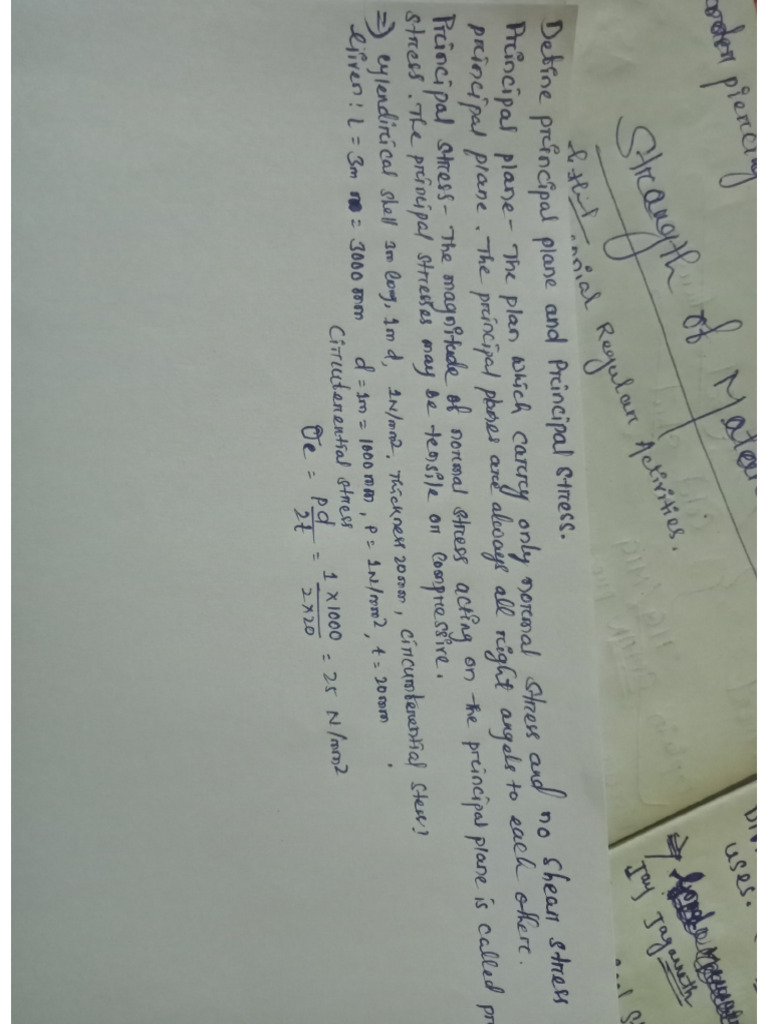 Strength of Mater
Regular Activities.
Define principal plane and Principal stress.
Principal plane - The plan which carry only normal stress and no shear stress
principal plane. The principal planes are always all right angels to each other.
Principal stress - The magnitude of normal stress acting on the principal plane is called pr
stress. The principal stresses may be tensile or compressive.
=> cylendirical shell 3m log, 1m d, 1N/mm2, thickness 20mm, circumferential stess?
Given: L = 3m = 3000 mm d = 1m = 1000 mm, P = 1N/mm2, t = 20mm.
Circumferential stress
σc = pd/2t = 1 × 1000/2 × 20 = 25 N/mm2
uses.
=>
Jay Jagannath